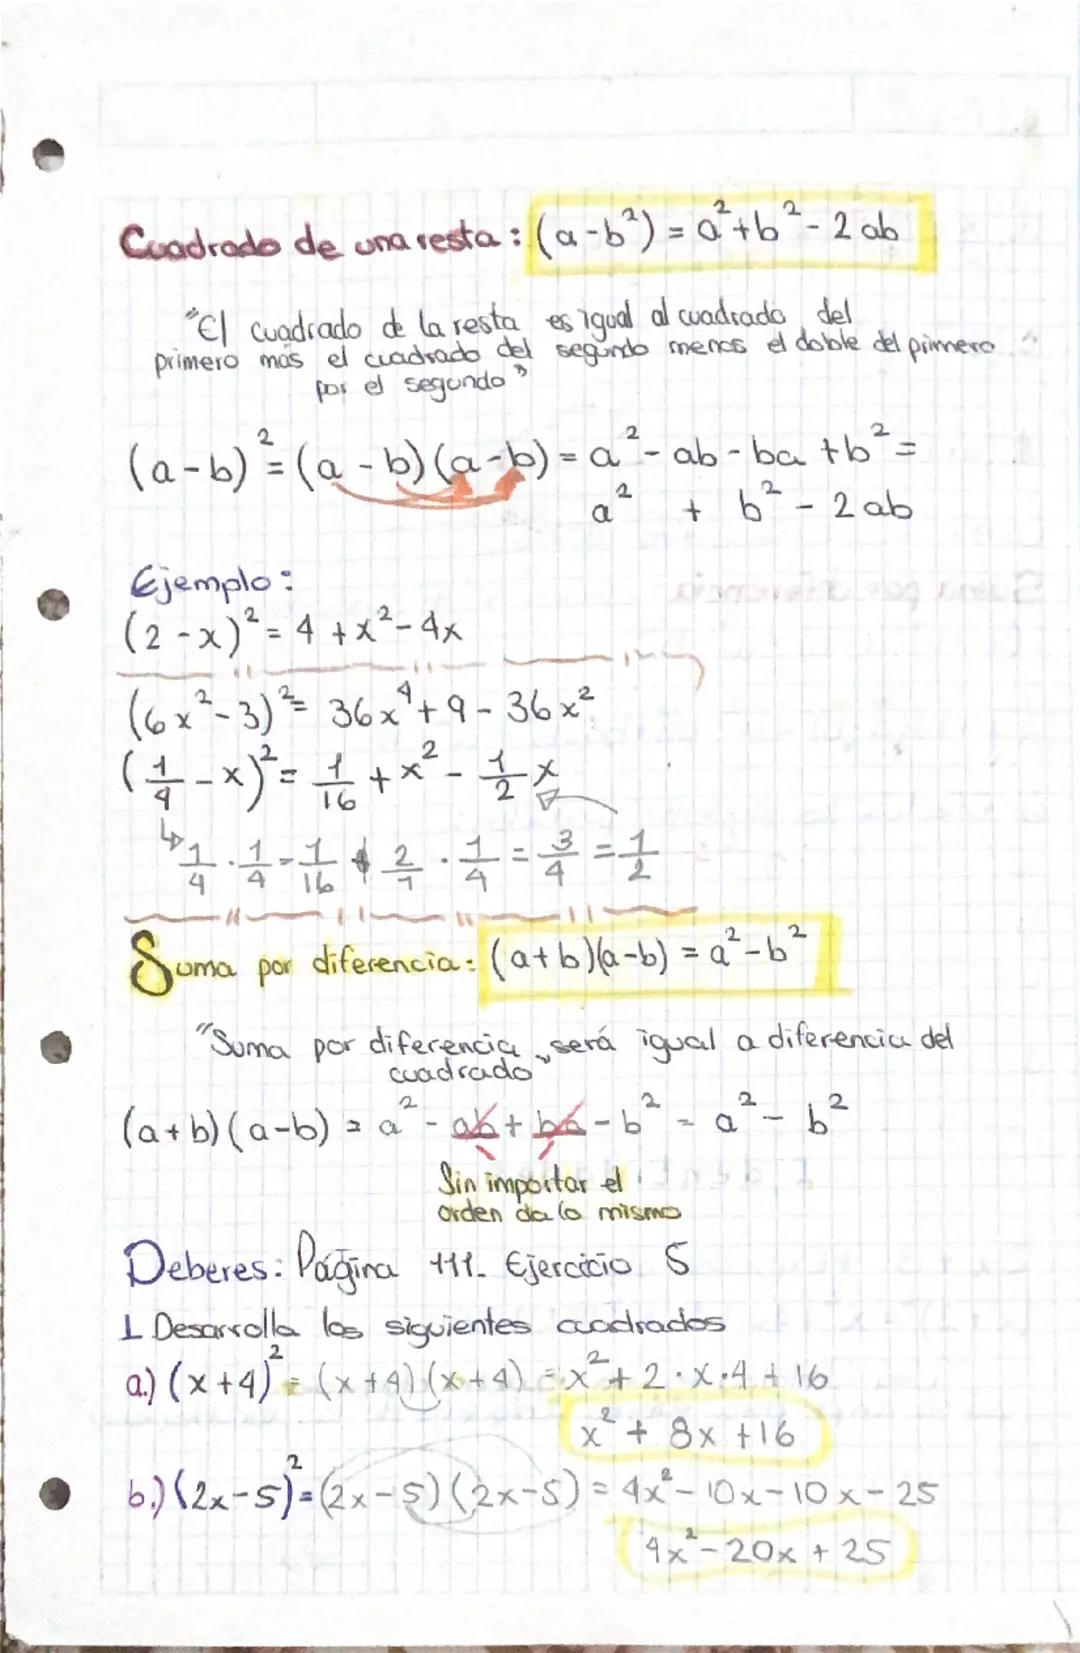 Cuadrado de una resta: (a-b²) = a²+b²-2ab
"El cuadrado de la resta es igual al cuadrado del
primero más el cuadrado del segundo menos el doble del primero
por el segundo"
(a-b)² = (a-b)(a-b) = a²-ab-ba+b² =
a² + b² - 2ab
Ejemplo:
(2-x)² = 4+x²-4x
(6x²-3)² = 36x⁴+9-36x²
(1/4-x)² = 1/16+x²-1/2x
1/4·1/4=1/16 2/1·1/4=3/4=1/2
Suma por diferencia: (a+b)(a-b) = a²-b²
"Suma por diferencia, será igual a diferencia del
cuadrado"
(a+b)(a-b) = a²-ab+ba-b² = a²-b²
Sin importar el
orden da lo mismo
Deberes: Página 111. Ejercicio 5
1 Desarrolla los siguientes cuadrados
a.) (x+4)² = (x+4)(x+4) = x²+2·x·4+16
x²+8x+16
b.) (2x-5)² = (2x-5)(2x-5) = 4x²-10x-10x-25
4x²-20x+25